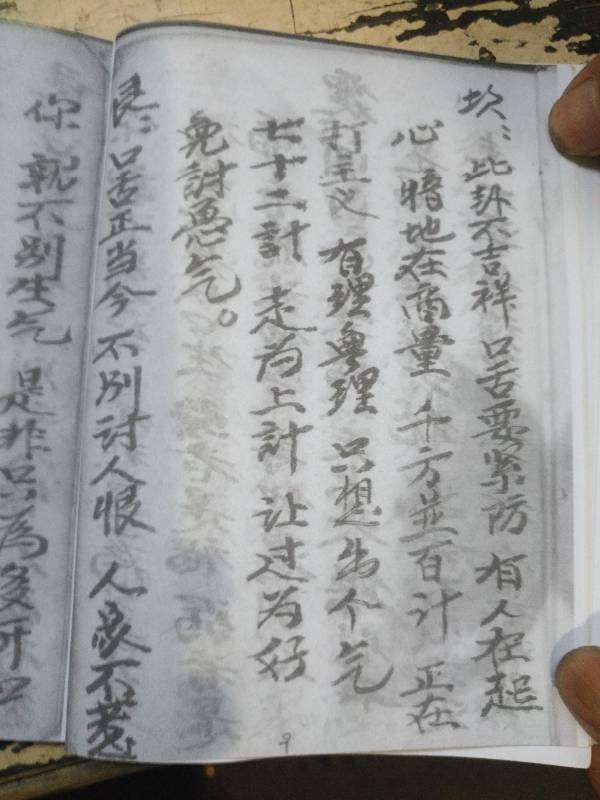 坎：此卦不吉祥 口舌要紧防 有人在起
心 暗地在商量 千方並百计 正在
打主义 有理与无理 只想出个气
七十二計 走为上計 让过为好
免討愚气。
艮：口舌正当今 不别讨人恨 人家不惹
你 就不别生气 是非只為多开口
9